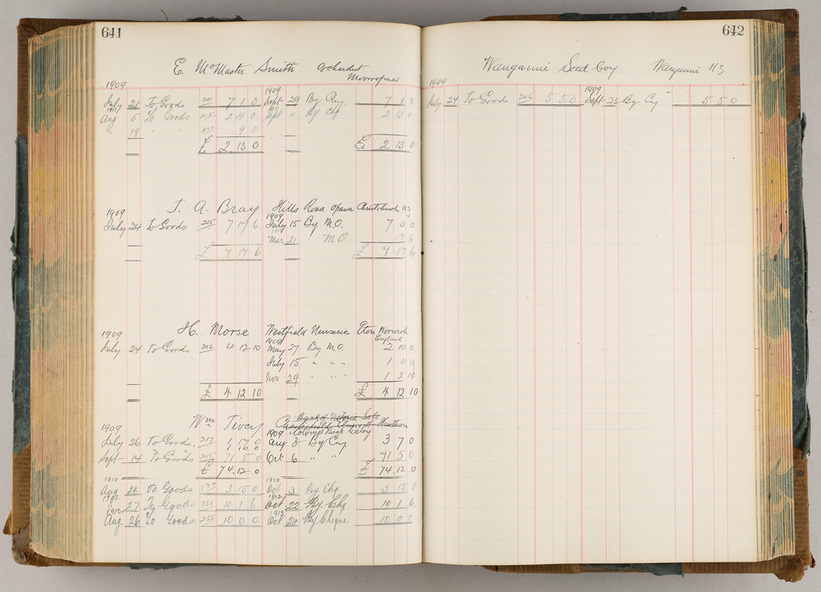 641
E. McMaster Smith Orchardist
Mooroopna
1909
July 21 To Goods 7 1 3 1909 Sept 29 By Cy. 7 1 3
Aug 5 To Goods 2 4 0 Sept 11 By Chq. 2 13 0
19 " " 9 0
£ 2 13 0 £ 2 13 0
1909 T. A. Bray Hills Road Opawa Christchurch NZ
July 24 To Goods 215 7 17 6 July 15 By M.O. 7 0 0
Mar 21 " M.O. 17 6
£ 7 17 6 £ 7 17 6
1909 H. Morse Westfield Nurserie Eton Norwich
England
July 24 To Goods 216 4 12 10 May 27 By M.O. 2 10 0
July 15 " " " 1 0 0
Nov 29 " " " 1 2 10
£ 4 12 10 £ 4 12 10
Wm Tivey
1909
July 26 To Goods 217 1909 Aug 3 By Cy 3 7 0
Sept 14 To Goods 71 5 0 Oct 6 " " 71 5 0
£ 74 12 0 £ 74 12 0
1910 1910
Aug 22 To Goods 3 15 0 Oct 3 By Chq 3 15 0
27 To Goods 10 1 6 Oct 22 By Chq. 10 1 6
Aug 26 To Goods 10 0 0 Oct 24 By Cheque 10 0 0
642
Wanganui Seed Coy Wanganui NZ
1909
July 24 To Goods 216 5 5 0 1909 Sept 23 By Cy 5 5 0